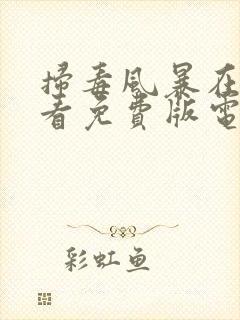 掃毒風暴在
看免費版電
彩虹鱼